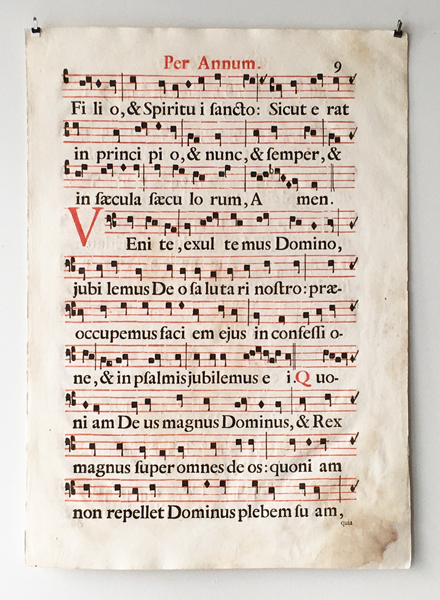 Per Annum. 9
Fi li o, & Spiritu i ſancto: Sicut e rat
in princi pi o, & nunc, & ſemper, &
in ſæcula ſæcu lo rum, A men.
VEni te, exul te mus Domino,
jubi lemus De o ſa lu ta ri noſtro: præ-
occupemus faci em ejus in confeſſi o-
ne, & in pſalmis jubilemus e i. Quo-
ni am De us magnus Dominus, & Rex
magnus ſuper omnes de os: quoni am
non repellet Dominus plebem ſu am,
quia